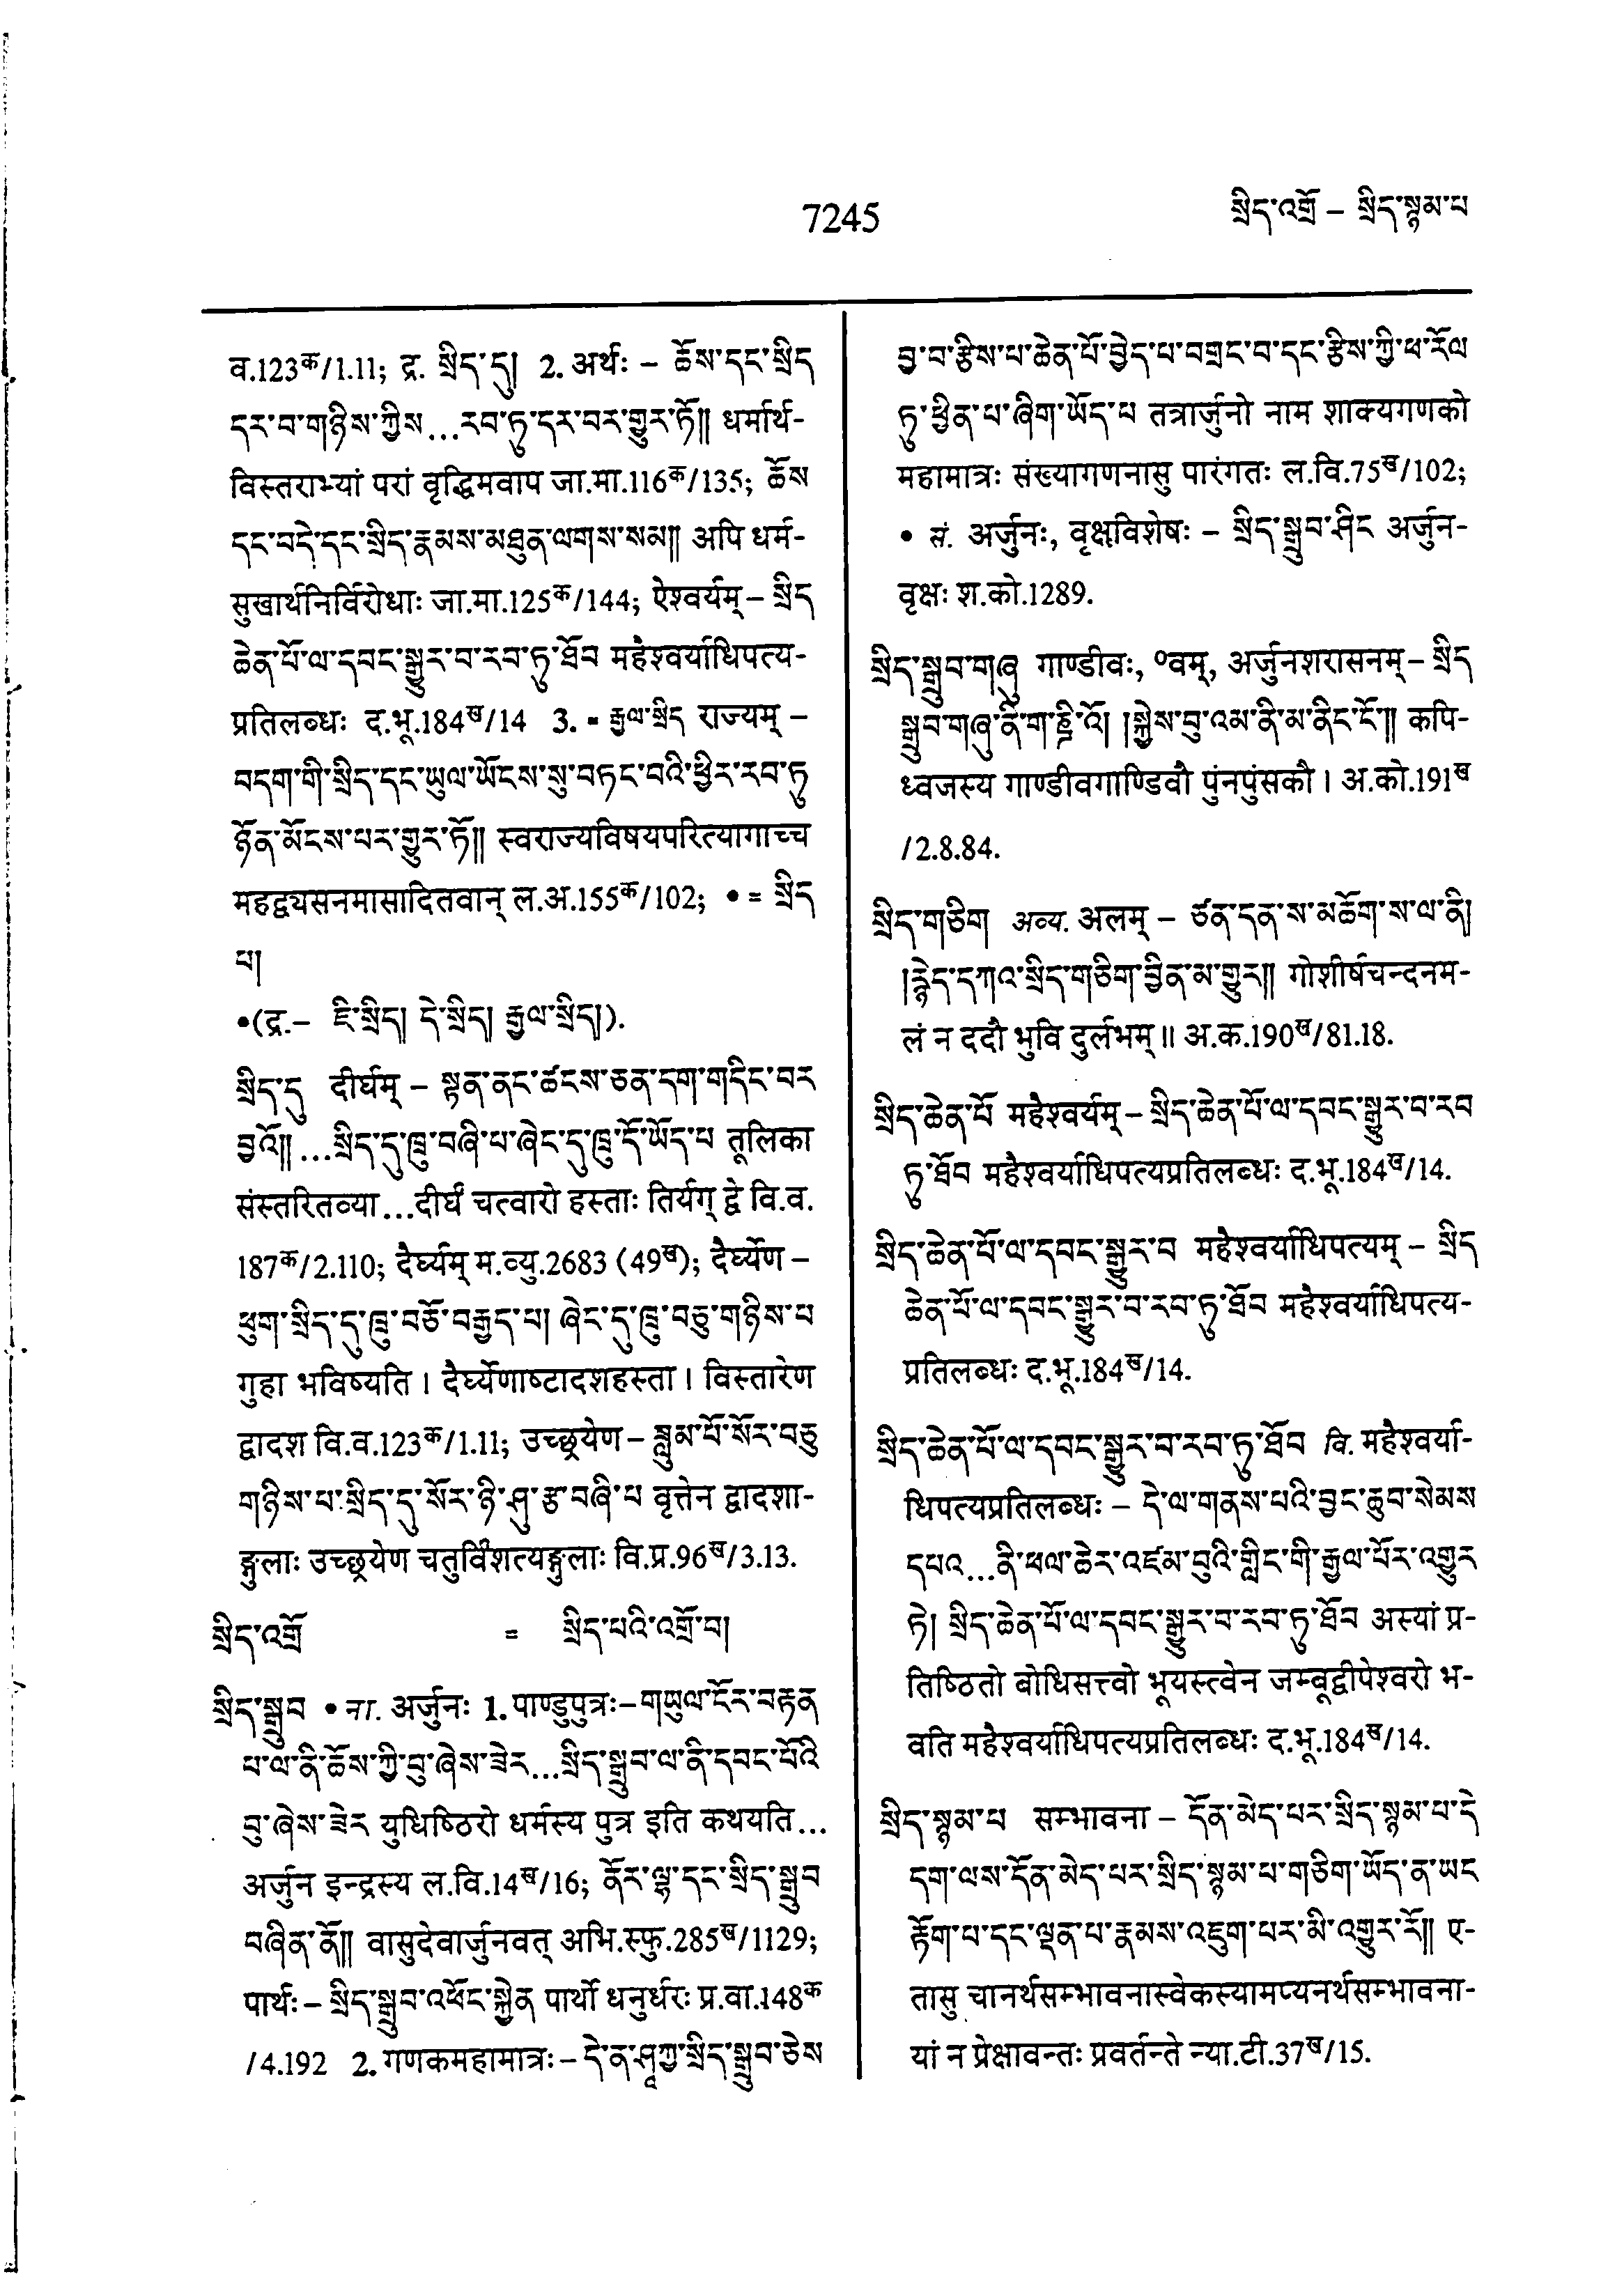 7245
སྲིད་འགྲོ – སྲིད་སྙམ་པ
व.123क/1.11; द्र. སྲིད་དུ། 2. अर्थः – ཆོས་དང་སྲིད
དར་བ་གཉིས་ཀྱིས...རབ་ཏུ་དར་བར་གྱུར་ཏོ༎ धर्मार्थ-
विस्तराभ्यां परां वृद्धिमवाप जा.मा.116क/135; ཆོས
དང་བདེ་དང་སྲིད་རྣམས་མཐུན་ལགས་སམ༎ अपि धर्म-
सुखार्थनिर्विरोधाः जा.मा.125क/144; ऐश्वर्यम् – སྲིད
ཆེན་པོ་ལ་དབང་སྒྱུར་བ་རབ་ཏུ་ཐོབ महैश्वर्याधिपत्य-
प्रतिलब्धः द.भू.184ख/14 3. = རྒྱལ་སྲིད राज्यम् –
བདག་གི་སྲིད་དང་ཡུལ་ཡོངས་སུ་བཏང་བའི་ཕྱིར་རབ་ཏུ
ཉོན་མོངས་པར་གྱུར་ཏོ༎ स्वराज्यविषयपरित्यागाच्च
महद्व्यसनमासादितवान् ल.अ.155क/102; • = སྲིད
པ།
•(द्र.– ཇི་སྲིད། དེ་སྲིད། རྒྱལ་སྲིད།).
སྲིད་དུ दीर्घम् – སྟན་ནང་ཚངས་ཅན་དག་གདིང་བར
བྱའོ༎ ...སྲིད་དུ་ཁྲུ་བཞི་པ་ཞེང་དུ་ཁྲུ་དོ་ཡོད་པ तूलिका
संस्तरितव्या...दीर्घं चत्वारो हस्ताः तिर्यग् द्वे वि.व.
187क/2.110; दैर्घ्यम् म.व्यु.2683 (49ख); दैर्घ्येण –
ཕུག་སྲིད་དུ་ཁྲུ་བཅོ་བརྒྱད་པ། ཞེང་དུ་ཁྲུ་བཅུ་གཉིས་པ
गुहा भविष्यति। दैर्घ्येणाष्टादशहस्ता। विस्तारेण
द्वादश वि.व.123क/1.11; उच्छ्रयेण – ཟླུམ་པོ་སོར་བཅུ
གཉིས་པ་སྲིད་དུ་སོར་ཉི་ཤུ་རྩ་བཞི་པ वृत्तेन द्वादशा-
ङ्गुलाः उच्छ्रयेण चतुर्विंशत्यङ्गुलाः वि.प्र.96ख/3.13.
སྲིད་འགྲོ = སྲིད་པའི་འགྲོ་བ།
སྲིད་སྒྲུབ • ना. अर्जुनः 1. पाण्डुपुत्रः – གཡུལ་ངོར་བརྟན
པ་ལ་ནི་ཆོས་ཀྱི་བུ་ཞེས་ཟེར...སྲིད་སྒྲུབ་ལ་ནི་དབང་པོའི
བུ་ཞེས་ཟེར युधिष्ठिरो धर्मस्य पुत्र इति कथयति...
अर्जुन इन्द्रस्य ल.वि.14ख/16; ནོར་ལྷ་དང་སྲིད་སྒྲུབ
བཞིན་ནོ༎ वासुदेवार्जुनवत् अभि.स्फु.285ख/1129;
पार्थः – སྲིད་སྒྲུབ་འཕོང་སྐྱེན पार्थो धनुर्धरः प्र.वा.148क
/4.192 2. गणकमहामात्रः – དེ་ན་ཤཱཀྱ་སྲིད་སྒྲུབ་ཅེས
བྱ་བ་རྩིས་པ་ཆེན་པོ་བྱེད་པ་བགྲང་བ་དང་རྩིས་ཀྱི་ཕ་རོལ
ཏུ་ཕྱིན་པ་ཞིག་ཡོད་པ तत्रार्जुनो नाम शाक्यगणको
महामात्रः संख्यागणनासु पारंगतः ल.वि.75ख/102;
• सं. अर्जुनः, वृक्षविशेषः – སྲིད་སྒྲུབ་ཤིང अर्जुन-
वृक्षः श.को.1289.
སྲིད་སྒྲུབ་གཞུ गाण्डीवः, ०वम्, अर्जुनशरासनम् – སྲིད
སྒྲུབ་གཞུ་ནི་ག་ཎྜི་འོ། །སྐྱེས་བུ་འམ་ནི་མ་ནིང་ངོ༎ कपि-
ध्वजस्य गाण्डीवगाण्डिवौ पुंनपुंसकौ। अ.को.191ख
/2.8.84.
སྲིད་གཅིག अव्य. अलम् – ཙན་དན་ས་མཆོག་ས་ལ་ནི།
།རྙེད་དཀའ་སྲིད་གཅིག་བྱིན་མ་གྱུར༎ गोशीर्षचन्दनम-
लं न ददौ भुवि दुर्लभम्॥ अ.क.190ख/81.18.
སྲིད་ཆེན་པོ महैश्वर्यम् – སྲིད་ཆེན་པོ་ལ་དབང་སྒྱུར་བ་རབ
ཏུ་ཐོབ महैश्वर्याधिपत्यप्रतिलब्धः द.भू.184ख/14.
སྲིད་ཆེན་པོ་ལ་དབང་སྒྱུར་བ महैश्वर्याधिपत्यम् – སྲིད
ཆེན་པོ་ལ་དབང་སྒྱུར་བ་རབ་ཏུ་ཐོབ महैश्वर्याधिपत्य-
प्रतिलब्धः द.भू.184ख/14.
སྲིད་ཆེན་པོ་ལ་དབང་སྒྱུར་བ་རབ་ཏུ་ཐོབ वि. महैश्वर्या-
धिपत्यप्रतिलब्धः – དེ་ལ་གནས་པའི་བྱང་ཆུབ་སེམས
དཔའ...ནི་ཕལ་ཆེར་འཛམ་བུའི་གླིང་གི་རྒྱལ་པོར་འགྱུར
ཏེ། སྲིད་ཆེན་པོ་ལ་དབང་སྒྱུར་བ་རབ་ཏུ་ཐོབ अस्यां प्र-
तिष्ठितो बोधिसत्त्वो भूयस्त्वेन जम्बूद्वीपेश्वरो भ-
वति महैश्वर्याधिपत्यप्रतिलब्धः द.भू.184ख/14.
སྲིད་སྙམ་པ सम्भावना – དོན་མེད་པར་སྲིད་སྙམ་པ་དེ
དག་ལས་དོན་མེད་པར་སྲིད་སྙམ་པ་གཅིག་ཡོད་ན་ཡང
རྟོག་པ་དང་ལྡན་པ་རྣམས་འཇུག་པར་མི་འགྱུར་རོ༎ ए-
तासु चानर्थसम्भावनास्वेकस्यामप्यनर्थसम्भावना-
यां न प्रेक्षावन्तः प्रवर्तन्ते न्या.टी.37ख/15.